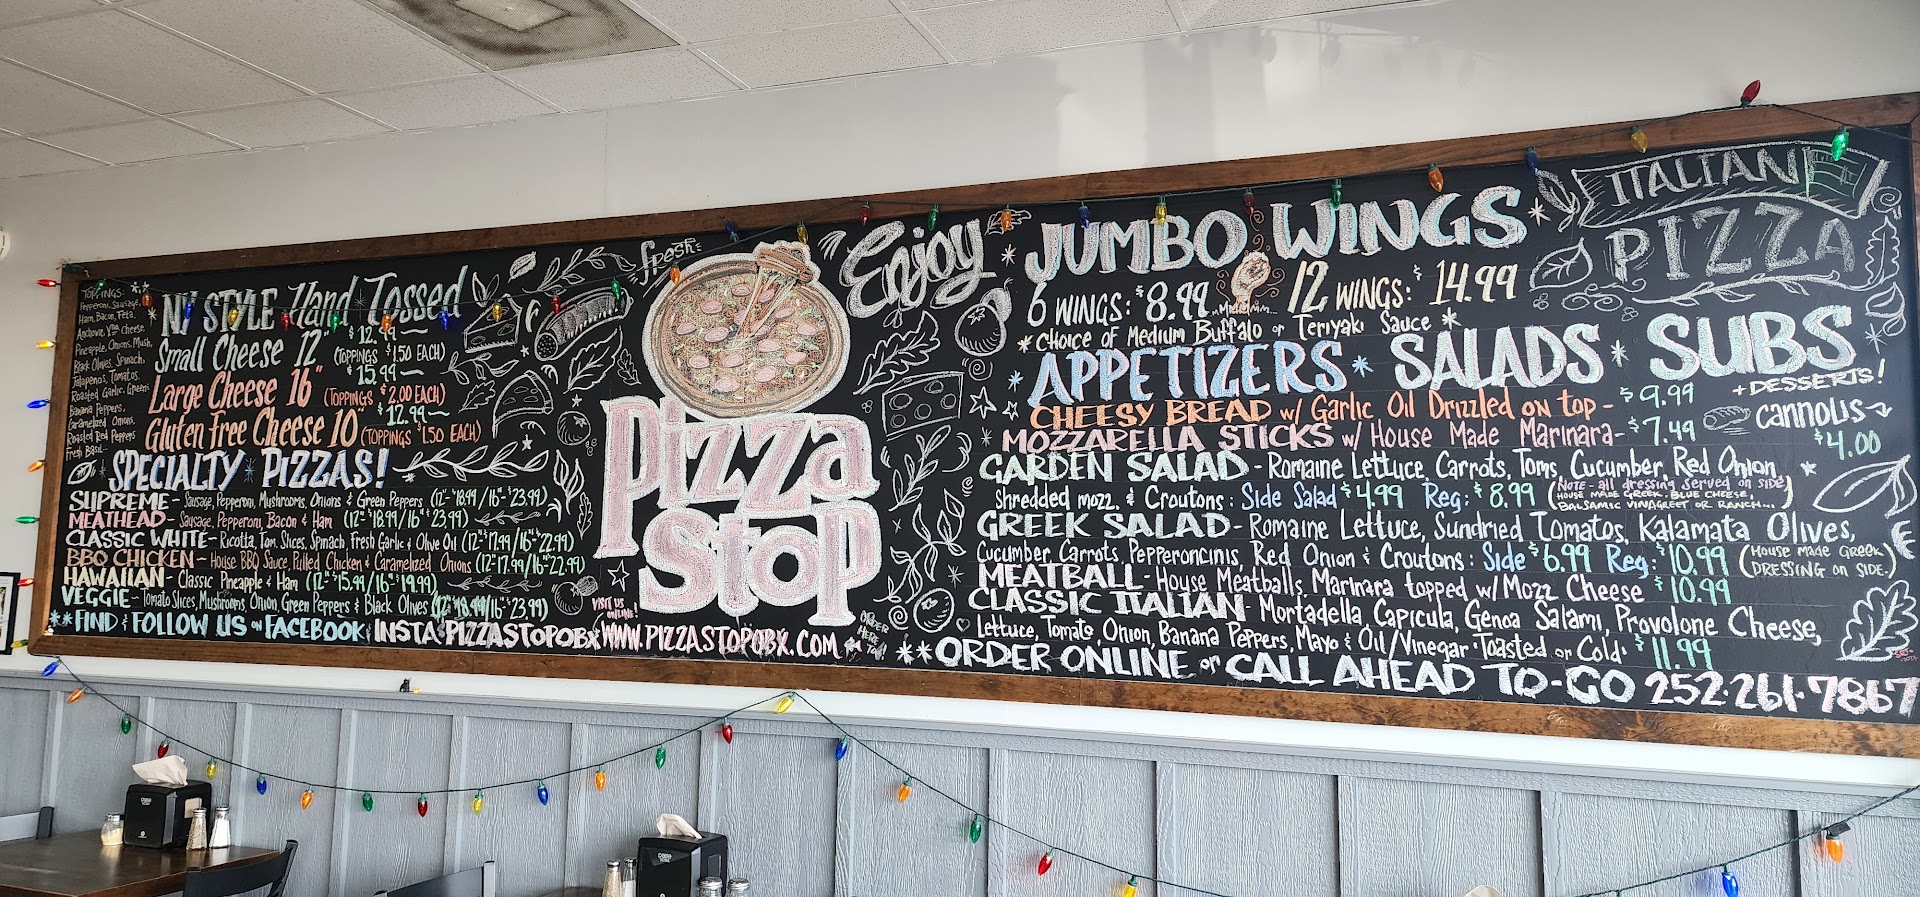 TOPPINGS:
Pepperoni, Sausage,
Ham, Bacon, Feta,
Anchovie, Cheese,
Pineapple, Onions, Mush,
Black Olives, Spinach,
Jalapenos, Tomatos,
Roasted Garlic, Green
Banana Peppers,
Caramelized Onions,
Roasted Red Peppers
Fresh Basil
NY STYLE Hand Tossed
Small Cheese 12" $12.99
(TOPPINGS $1.50 EACH)
Large Cheese 16" $15.99
(TOPPINGS $2.00 EACH)
Gluten free Cheese 10" $12.99
(TOPPINGS $1.50 EACH)
SPECIALTY * PIZZAS!
SUPREME - Sausage, Pepperoni, Mushrooms, Onions & Green Peppers (12"-$18.99/16"-$23.99)
MEATHEAD - Sausage, Pepperoni, Bacon & Ham (12"-$18.99/16"-$23.99)
CLASSIC WHITE - Ricotta, Tom. Slices, Spinach, Fresh Garlic & Olive Oil (12"-$17.99/16"-$22.99)
BBQ CHICKEN - House BBQ Sauce, Pulled Chicken & Caramelized Onions (12"-17.99/16"-$22.99)
HAWAIIAN - Classic Pineapple & Ham (12"-$15.99/16"-$19.99)
VEGGIE - Tomato Slices, Mushrooms, Onion, Green Peppers & Black Olives (12"-$18.99/16"-$23.99)
**FIND & FOLLOW US on FACEBOOK & INSTA PIZZASTOPOBX
fresh
Pizza
Stop
VISIT US
ONLINE!
WWW.PIZZASTOPOBX.COM
ORDER
HERE
TOO!
Enjoy
* JUMBO WINGS *
6 WINGS: $8.99 12 WINGS: $14.99
* Choice of Medium Buffalo or Teriyaki Sauce *
ITALIAN
PIZZA
* APPETIZERS * SALADS * SUBS
+DESSERTS!
CANNOLIS
$4.00
CHEESY BREAD w/ Garlic Oil Drizzled on top - $9.99
MOZZARELLA STICKS w/ House Made Marinara - $7.49
GARDEN SALAD - Romaine Lettuce, Carrots, Toms, Cucumber, Red Onion,
Shredded mozz. & Croutons: Side Salad $4.99 Reg: $8.99
(NOTE - all dressing served on SIDE,
HOUSE MADE GREEK, BLUE CHEESE,
BALSAMIC VINAGREET OR RANCH...)
GREEK SALAD - Romaine Lettuce, Sundried Tomatos, Kalamata Olives,
Cucumber, Carrots, Pepperoncinis, Red Onion & Croutons: Side $6.99 Reg: $10.99
(HOUSE MADE GREEK
DRESSING on SIDE.)
MEATBALL - House Meatballs, Marinara topped w/ Mozz Cheese $10.99
CLASSIC ITALIAN - Mortadella, Capicula, Genoa Salami, Provolone Cheese,
Lettuce, Tomato, Onion, Banana Peppers, Mayo & Oil/Vinegar "Toasted or Cold" $11.99
**ORDER ONLINE or CALL AHEAD TO-GO 252-261-7867